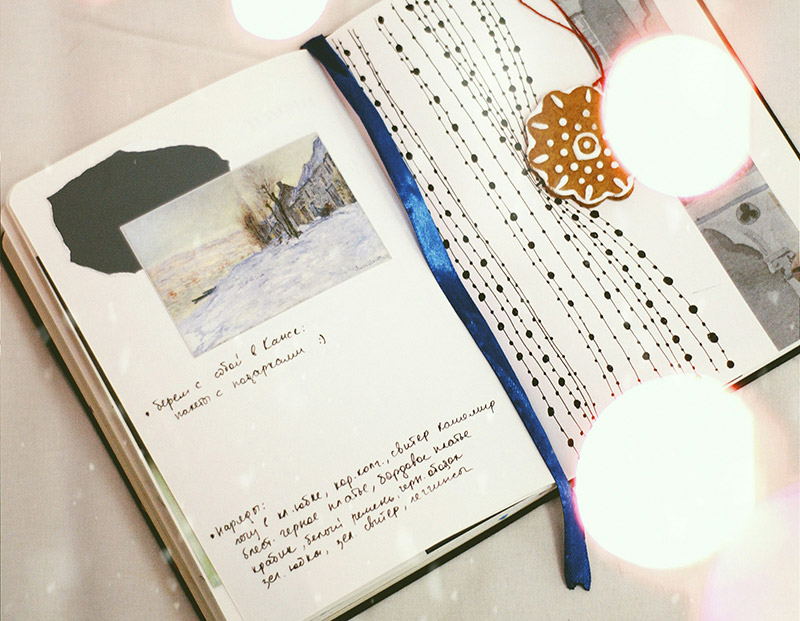 • берем с собой в Канск:
пакеты с подарками :)
• Наряды:
лечу в кл. юбке, кор. колг., свитер кашемир
блест. черное платье, бордовое платье
крабик, белый ремень. черн. ободок
зел. юбка, зел. свитер, леггинсы